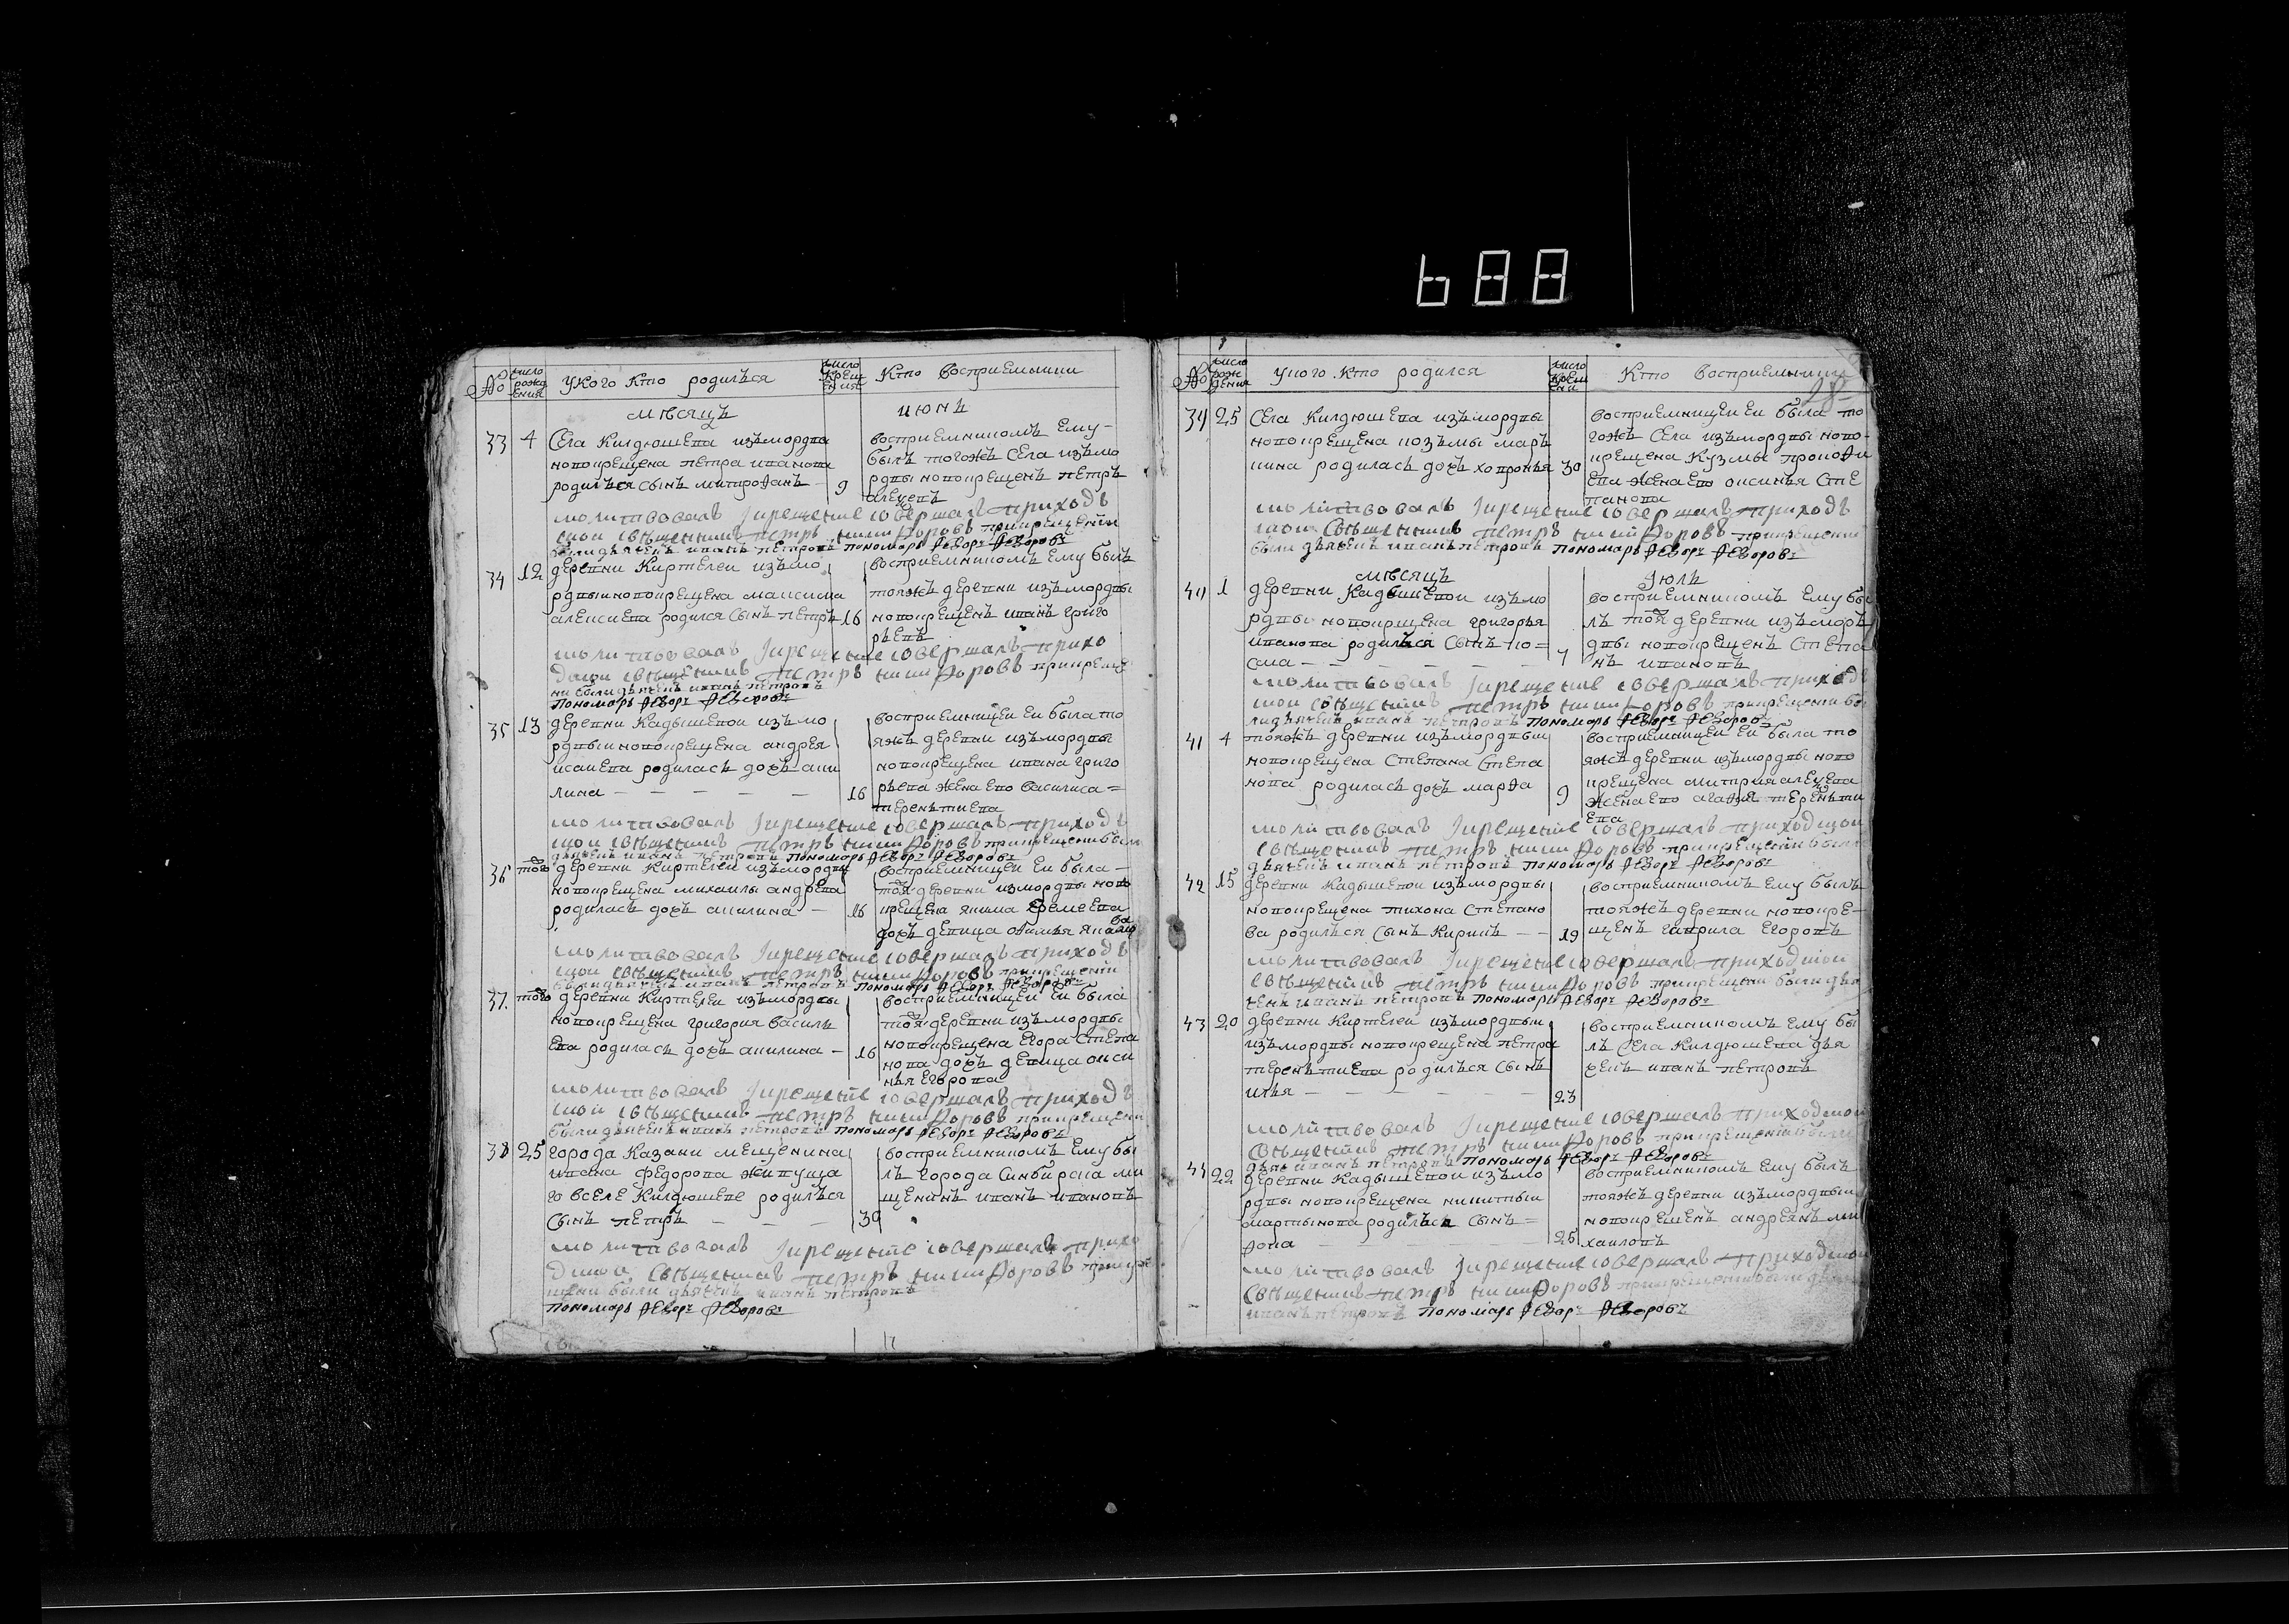 688
№ число рождения У кого кто родился число крещения Кто восприемники
мѣсяцъ июнь
33 4 Села Килдюшева изъ мордвы
новокрещена петра иванова
родился сынъ митрофанъ – 9
восприемникомъ ему –
былъ того жъ села изъ мо
рдвы новокрещенъ петръ
алеѯеевъ
молитвовалъ и крещение совершалъ приход
ской священникъ петръ никифоровъ при крещении
были дьячекъ иванъ петровъ пономарь федоръ федоровъ
34 12 деревни Киртелеи изъ мо
рдвы новокрещена максима
алексиева родился сынъ петръ 16
восприемникомъ ему былъ
тояжъ деревни изъ мордвы
новокрещенъ иванъ григо
рьевъ
молитвовалъ и крещение совершалъ прихо
дской священникъ петръ никифоровъ при креще
ни были дьячекъ иванъ петровъ
пономарь федоръ федоровъ
35 13 деревни Кадышевой изъ мо
рдвы новокрещена андрея
исаиева родилась дочь аки
лина – – – – – 16
восприемницеи еи была то
яжъ деревни изъ мордвы
новокрещена ивана григо
рьева жена ево василиса =
терентиева
молитвовалъ и крещение совершалъ приход
ской священникъ петръ никифоровъ при крещени были
дьячекъ иванъ петровъ пономарь федоръ федоровъ
36 того деревни Киртелеи изъ мордвы
новокрещена михаилы андрева
родилась дочь акилина – 16
восприемницеи еи была –
тоя деревни из мордвы ново
крещена якима еремеева
дочь девица
молитвовалъ и крещение совершалъ приход
ской священникъ петръ никифоровъ при крещении
были дьячекъ иванъ петровъ пономарь федоръ федоровъ
37 того деревни Киртелеи изъ мордвы
новокрещена григория василь
ева родилась дочь акилина – 16
восприемницеи еи была
тоя деревни изъ мордвы
новокрещена егора степа
нова дочь девица окси
нья егорова
молитвовалъ и крещение совершалъ приход
ской священникъ петръ никифоровъ при крещени
были дьячекъ иванъ петровъ пономарь федоръ федоровъ
38 25 города Казани мещенина
ивана федорова живуща
го вселе Килдюшеве родился
сынъ петръ – – – 30
восприемникомъ ему бы
лъ города Синбирска ми
щенинъ иванъ ивановъ
молитвовалъ и крещение совершалъ прихо
дской священникъ петръ никифоровъ при кре
щени были дьячекъ иванъ петровъ
пономарь федоръ федоровъ
№ число рождения У кого кто родился число крещени Кто восприемники
28
39 25 Села Килдюшева изъ мордвы
новокрещена козьмы марь
кина родилась дочь ховронья 30
восприемницеи еи была то
гожъ села изъ мордвы ново-
крещена кузмы прокофи
ева жена ево оксинья сте
панова
молитвовалъ и крещение совершалъ приход
ской священникъ петръ никифоровъ при крещении
были дьячекъ иванъ петровъ пономарь федоръ федоровъ
мѣсяцъ июль
40 1 деревни Кадышевои изъ мо
рдвы новокрщена григорья
иванова родился сынъ ко=
сма – – – – – 7
восприемникомъ ему бы
лъ тоя деревни изъ морд
двы новокрещенъ степа
нъ ивановъ
молитвовалъ и крещение совершалъ приход
ской священникъ петръ никифоровъ при крещени бы
ли дьячекъ иванъ петровъ пономарь федоръ федоровъ
41 4 тояжъ деревни изъ мордвы
новокрещена степана степа
нова родилась дочь марфа 9
восприемницеи еи была то
яжъ деревни изъ мордвы ново
крещена митрия алеѯеева
жена ево агафья терентьи
ева
молитвовалъ и крещение совершалъ приходской
священникъ петръ никифоровъ при крещении были
дьячекъ иванъ петровъ пономарь федоръ федоровъ
42 15 деревни Кадышевои изъ мордвы
новокрещена тихона степано
ва родился сынъ кирикъ – – 19
восприемникомъ ему былъ
тояжъ деревни новокре–
щенъ гаврила егоровъ
молитвовалъ и крещение совершалъ приходской
священникъ петръ никифоровъ при крещени были дья
чекъ иванъ петровъ пономарь федоръ федоровъ
43 20 деревни Киртелеи изъ мордвы
изъ мордвы новокрещена петра
терентиева родился сынъ
илья – – – – – 23
восприемникомъ ему бы
лъ села Килдюшева дья
чекъ иванъ петровъ
молитвовалъ и крещение совершалъ приходской
священникъ петръ никифоровъ при крещении были
дьяч иванъ петровъ пономарь федоръ федоровъ
44 22 деревни Кадышевои изъ мо
рдвы новокрещена никиты
мартынова родился сынъ =
фока – – – 25
восприемникомъ ему былъ
тояжъ деревни изъ мордвы
новокрещенъ андреянъ ми
хаиловъ
молитвовалъ и крещение совершалъ приходской
священникъ петръ никифоровъ при крещени были дьячекъ
иванъ петровъ пономарь федоръ федоровъ